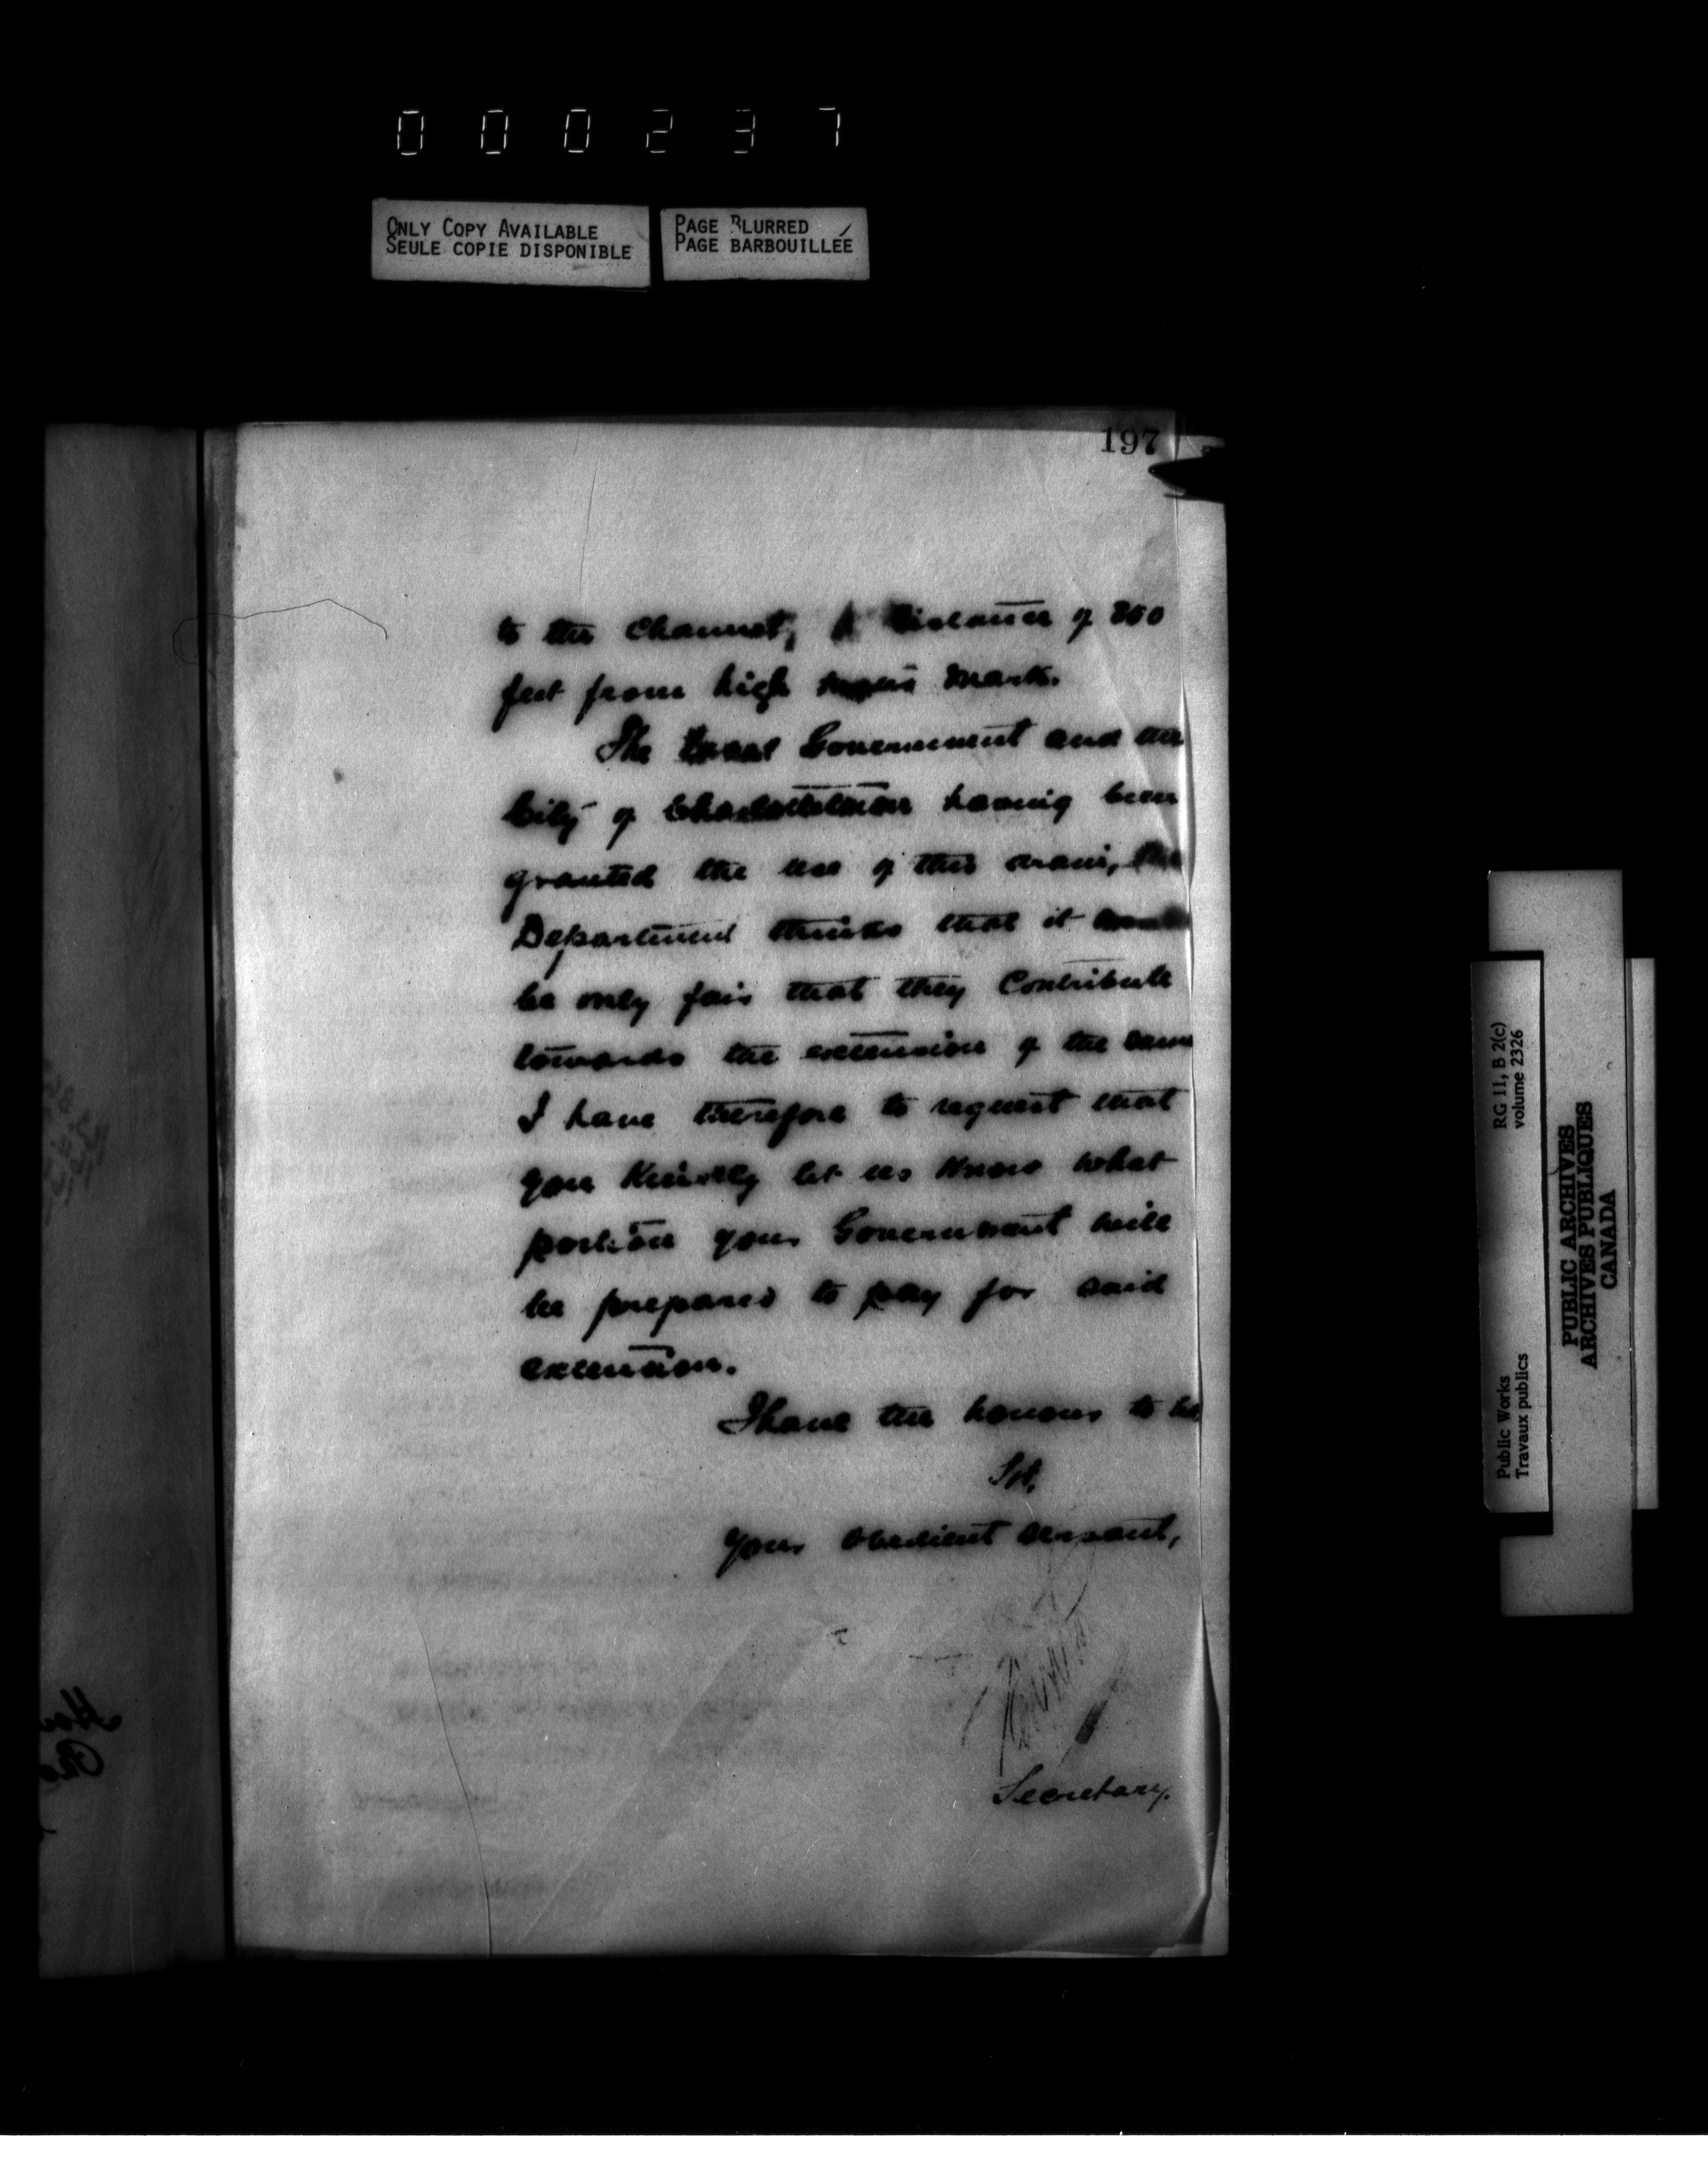 000237
ONLY COPY AVAILABLE
SEULE COPIE DISPONIBLE
PAGE BLURRED
PAGE BARBOUILLÉE
197
to the Channel, A distance of 850
feet from high water mark.
The Local Government and the
City of Charlottetown having been
granted the use of this drain, the
Department thinks that it would
be only fair that they Contribute
towards the extension of the same
I have therefore to request that
you Kindly let us Know what
portion your Government will
be prepared to pay for said
extension.
I have the honour to be
Sir,
Your Obedient Servant,
Secretary.
RG 11, B 2(c)
volume 2326
Public Works
Travaux publics
PUBLIC ARCHIVES
ARCHIVES PUBLIQUES
CANADA